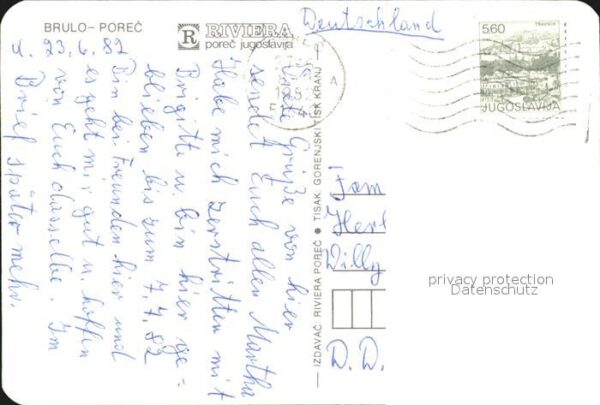 BRULO – POREČ
R RIVIERA
poreč jugoslavija
Deutschland
5.60
JUGOSLAVIJA
d. 23.6.82
Liebe Grüße von hier
sendet Euch allen Martha
Habe mich zerstritten mit
Brigitte u. bin hier ge=
blieben bis zum 7.7.82
Bin bei Freunden hier und
es geht mir gut u. hoffen
von Euch dasselbe. Im
Brief später mehr.
IZDAVAČ RIVIERA POREČ ● TISAK GORENJSKI TISK KRANJ
Fam
Herb
Willy
D.D.
privacy protection
Datenschutz